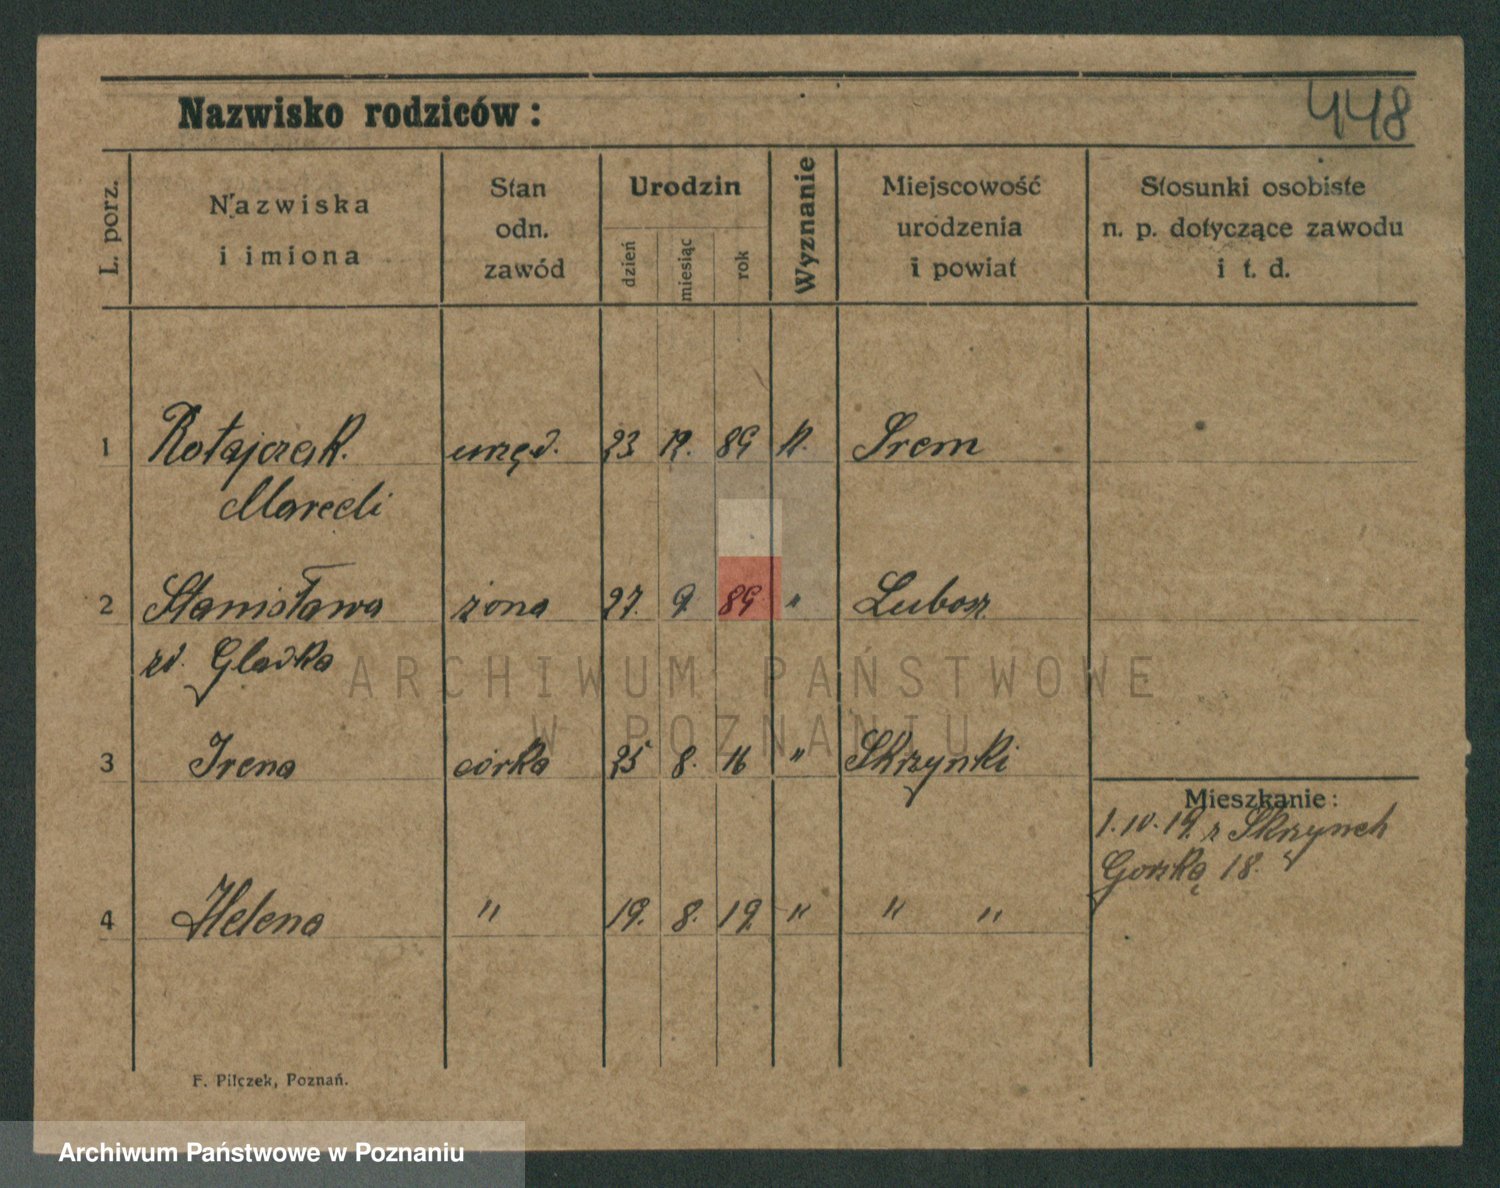 448
Nazwisko rodziców:
L. porz.
Nazwiska
i imiona
Stan
odn.
zawód
Urodzin
dzień
miesiąc
rok
Wyznanie
Miejscowość
urodzenia
i powiat
Stosunki osobiste
n. p. dotyczące zawodu
i t. d.
1 Ratajczak urzęd. 23 12. 89 k. Śrem
Marceli
2 Stanisława żona 27. 9. 89 " Lubosz
zd. Gladka
3 Irena córka 25 8. 16 " Skrzynki
Mieszkanie:
1.10.19 z Skrzynek
Gorską 18.
4 Helena " 19. 8. 19 " " "
F. Pilczek, Poznań.
ARCHIWUM PAŃSTWOWE
W POZNANIU
Archiwum Państwowe w Poznaniu